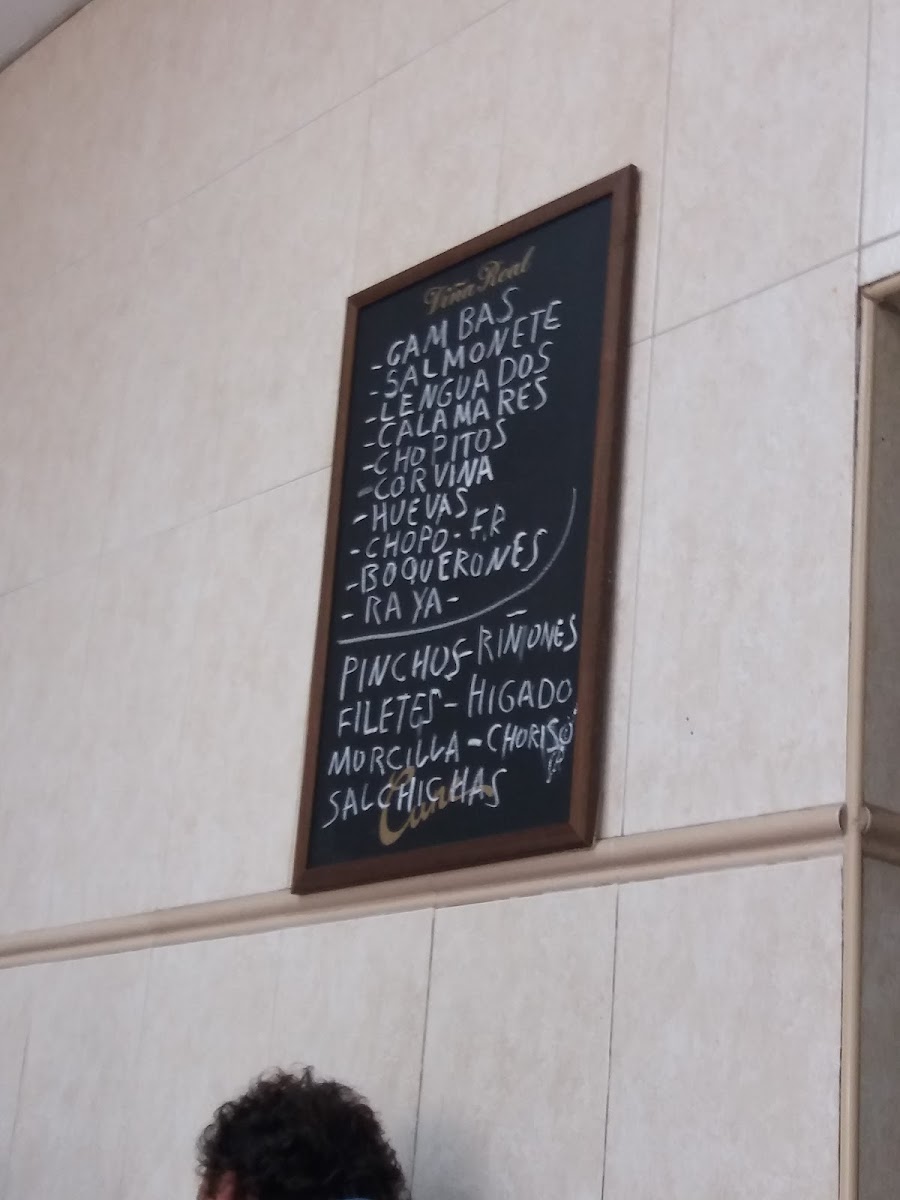 Viña Real
-GAMBAS
-SALMONETE
-LENGUADOS
-CALAMARES
-CHOPITOS
-CORVINA
-HUEVAS
-CHOPO-F.R
-BOQUERONES
-RAYA-
PINCHOS-RIÑONES
FILETES-HIGADO
MORCILLA-CHORISO
SALCHICHAS